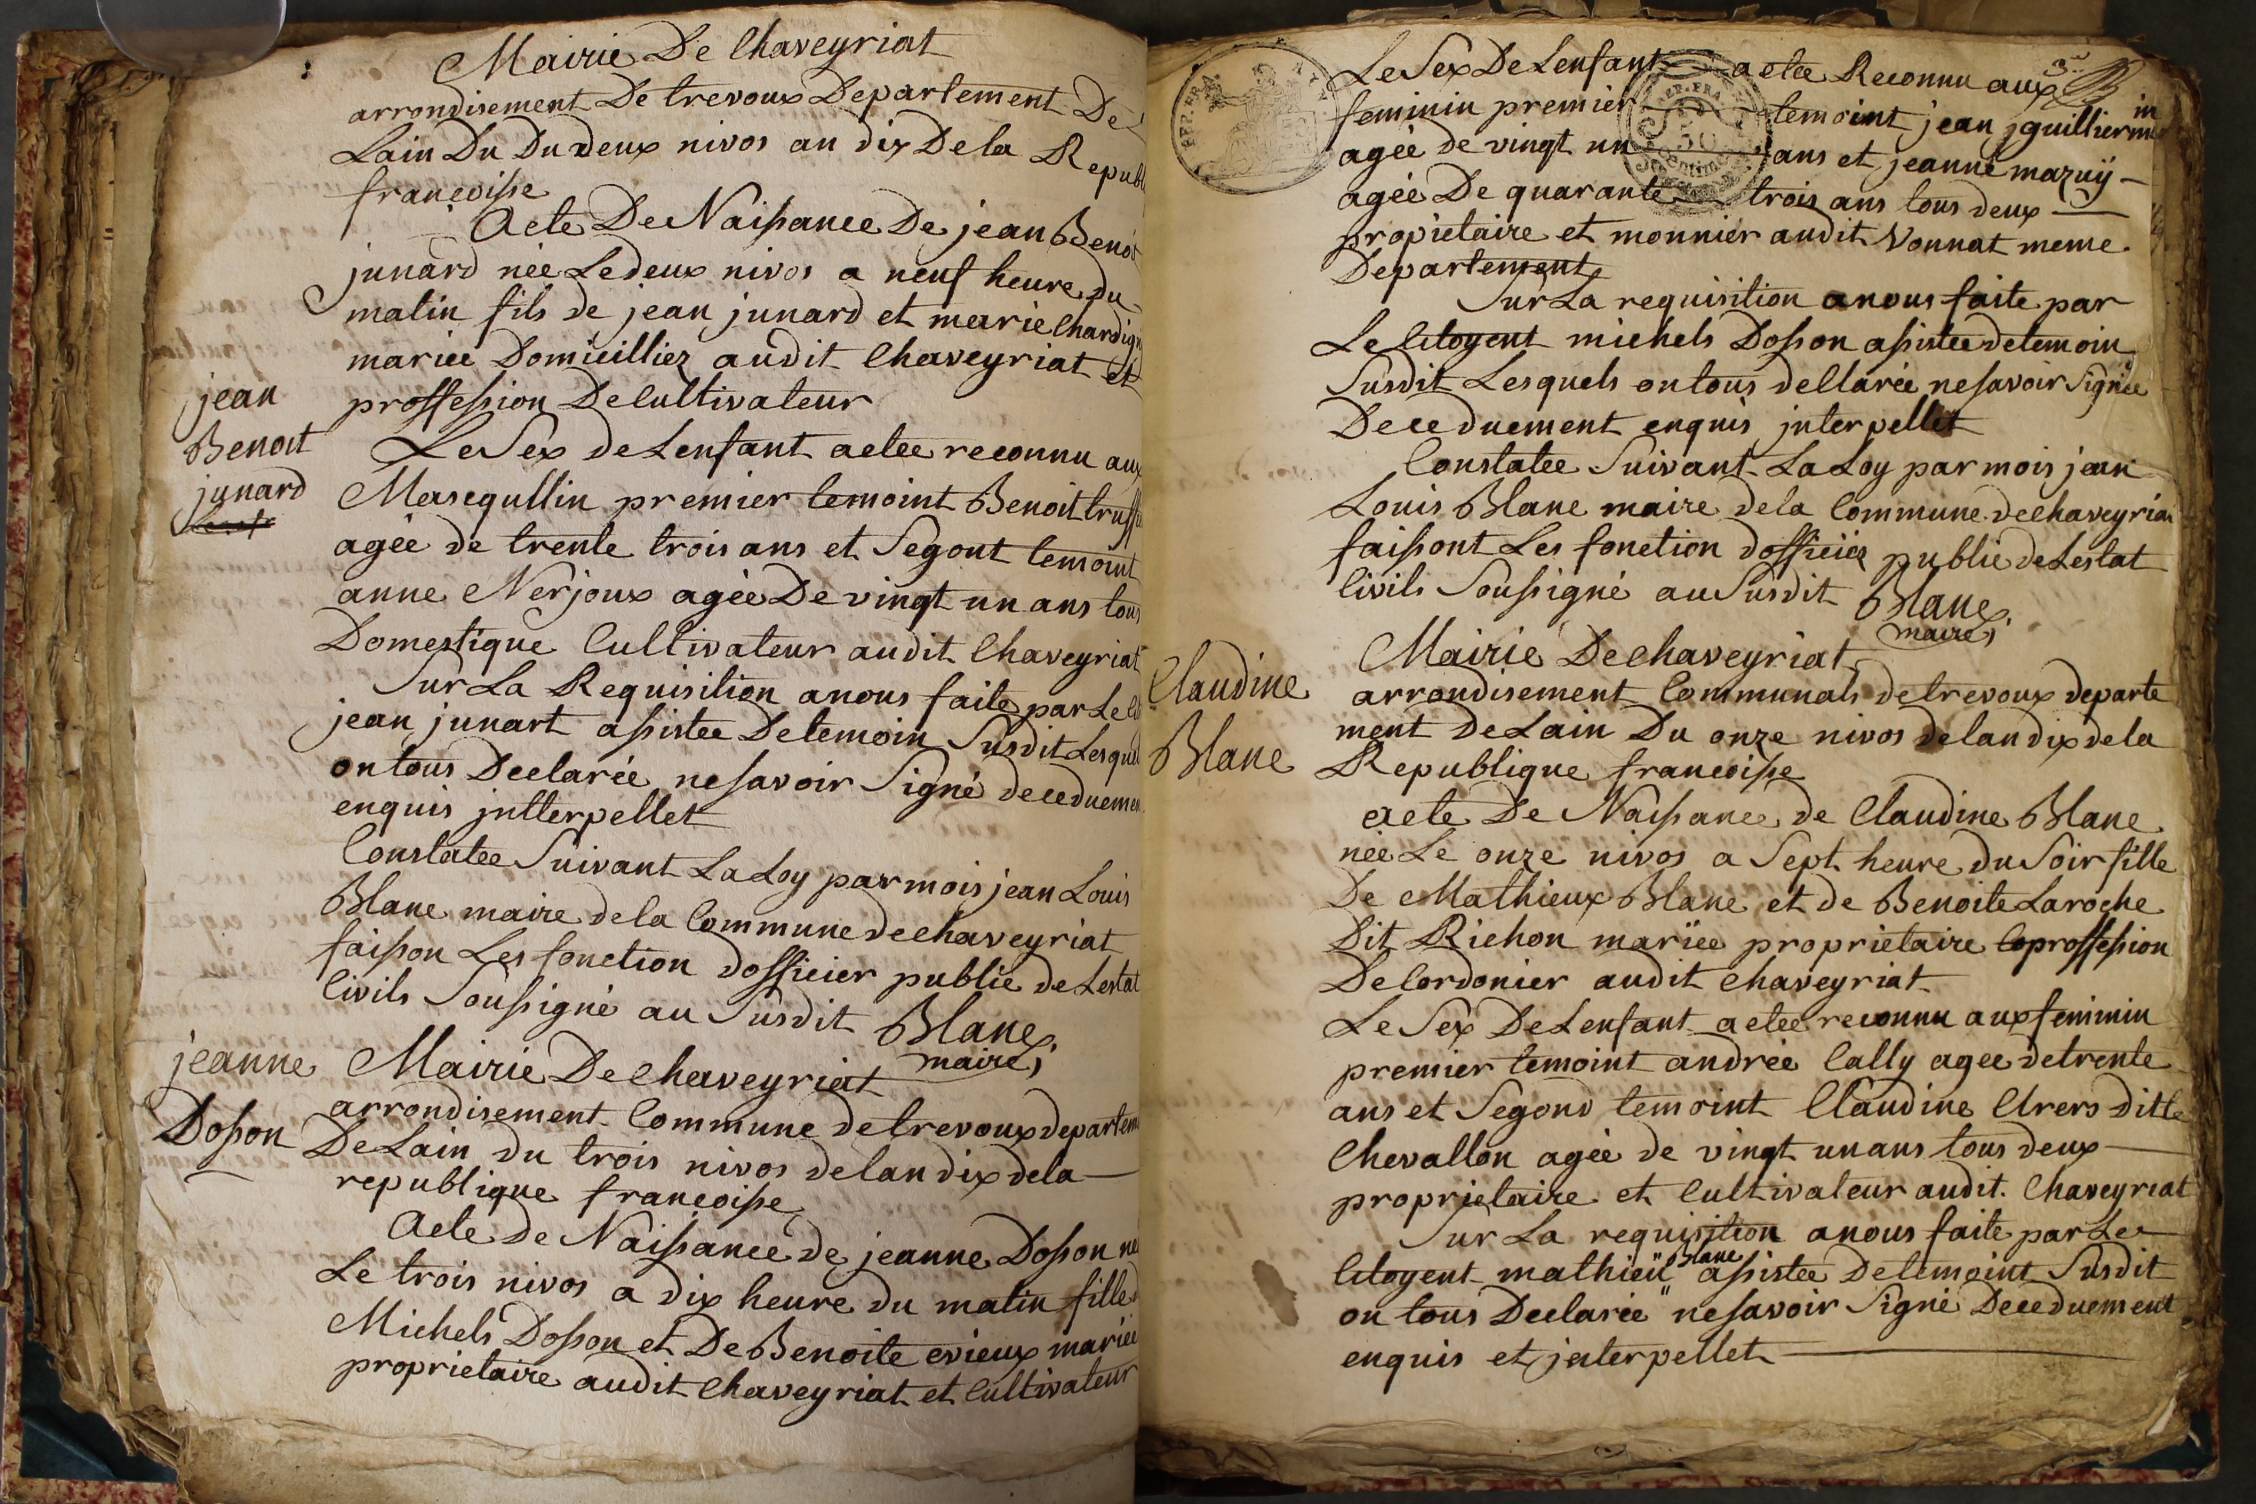 Mairie De Chaveyriat
arrondisement De trevoux Departement De
Lain Du Du deux nivos an dix De la Republ
francoisse
Acte De Naissance De jean Benoit
junard née Le deux nivos a neuf heure du
matin fils de jean junard et marie Chardign
mariee Domicilliez audit Chaveyriat et
proffession De Cultivateur
jean
Benoit
junard
Le Sex de Lenfant a etee reconnu aux
Masequllin premier temoint Benoit truff
agée de trente trois ans et Segont temoint
anne Nerjoux agée De vingt un ans tous
Domestique Cultivateur audit Chaveyriat
Sur La Requisition a nous faite par Le
jean junart assistee De temoin Susdit Lesquel
on tous Declarée ne savoir Signé de ce duemen
enquis jnterpellet
Constatee Suivant La Loy par mois jean Louis
Blanc maire de la Commune de chaveyriat
faisson Les fonction dofficier public de Lestat
Civils Soussigné au Susdit Blanc
maire
jeanne
Dosson
Mairie De Chaveyriat
arrondisement Commune de trevoux departem
De Lain du trois nivos de lan dix de la
republique francoisse
Acte de Naissance de jeanne Dosson ne
Le trois nivos a dix heure du matin fille
Michels Dosson et De Benoite evieux mariée
proprietaire audit Chaveyriat et Cultivateur
3
REP. FRA.
REP. FRA
50
Centimes
Le Sex De Lenfant a etee Reconnu aux
feminin premier temoint jean jguillermin
agée de vingt un ans et jeanne mazuÿ
agée De quarante trois ans tous deux
propietaire et monnier audit Vonnat meme
Departement
Sur La requisition a nous faite par
Le Citoyent michels Dosson assistee de temoin
Susdit Lesquels on tous dellarée ne savoir Signée
De ce duement enquis jnterpellet
Constatee Suivant La Loy par mois jean
Louis Blanc maire de la Commune de chaveyriat
faissont Les fonction dofficier public de Lestat
Civils Soussigné au Susdit Blanc
maire
Claudine
Blanc
Mairie De chaveyriat
arrondisement Communals de trevoux departe
ment De Lain Du onze nivos de lan dix de la
Republique francoisse
acte De Naissance de Claudine Blanc
née Le onze nivos a Sept heure du Soir fille
De Mathieux Blanc et de Benoite Laroche
Dit Richon mariée proprietaire proffession
De Cordonier audit chaveyriat
Le Sex De Lenfant a etee reconnu aux feminin
premier temoint andrée Cally agee de trente
ans et Segond temoint Claudine Urers ditte
Chevallon agée de vingt un ans tous deux
proprietaire et Cultivateur audit Chaveyriat
Sur La requisition a nous faite par Le
Citoyent mathieu Blanc assistee De temoint Susdit
on tous Declarée ne savoir Signé De ce duement
enquis et jnterpellet